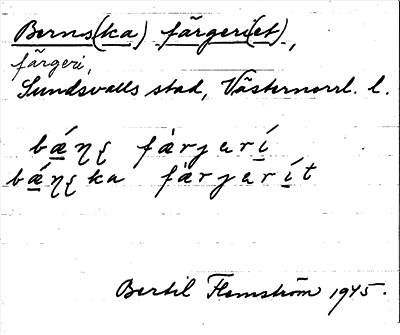 Berns(ka) färgeri(et),
färgeri,
Sundsvalls stad, Västernorrl. l.
bá̱ƞʂ fàrjerí̱
bá̱ƞʂka fàrjerí̱t
Bertil Flemström 1945.